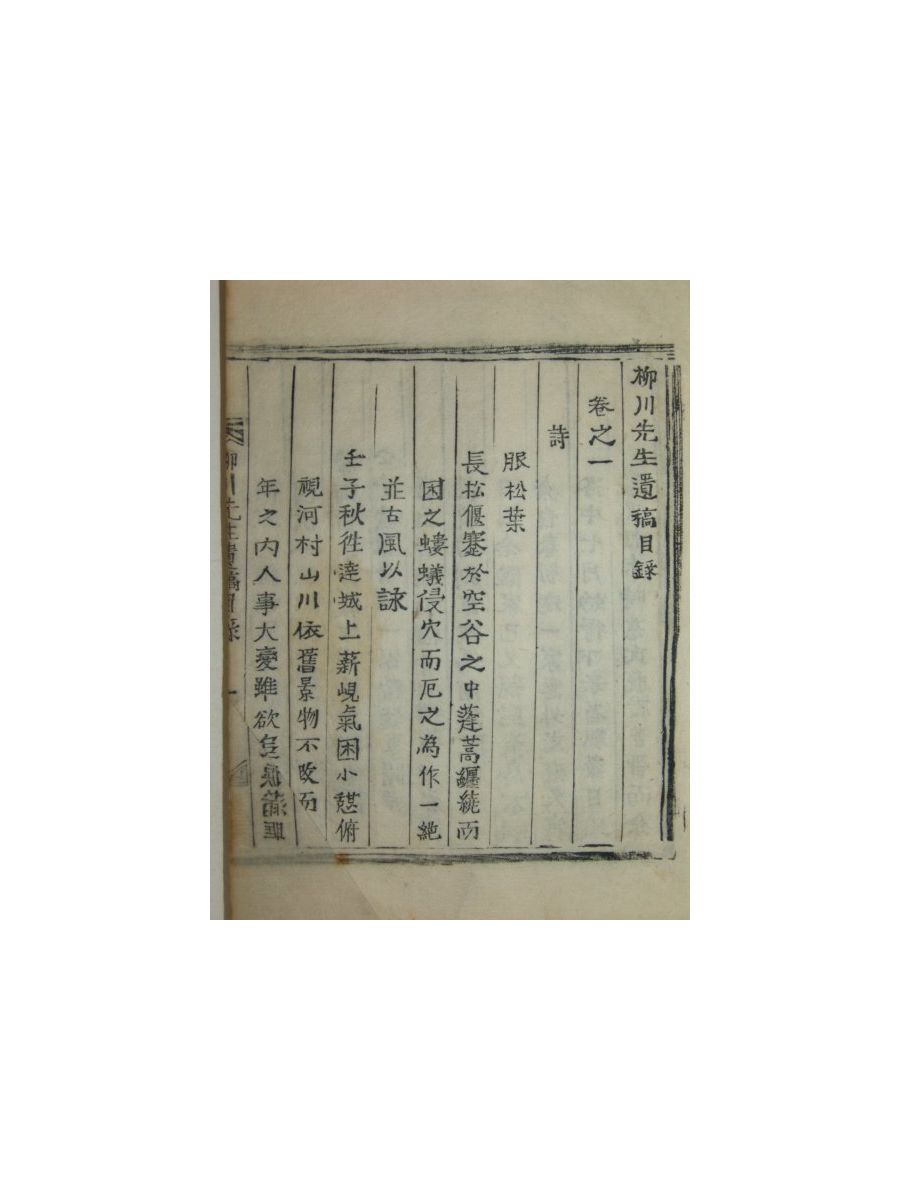 柳川先生遺稿目錄
卷之一
詩
服松葉
長松偃蹇於空谷之中蓬蒿纏繞而
困之螻蟻侵穴而厄之為作一絕
並古風以詠
壬子秋徃達城上薪峴氣困小憇俯
視河村山川依舊景物不改而
年之内人事大變雖欲
柳川先生遺稿目錄 一